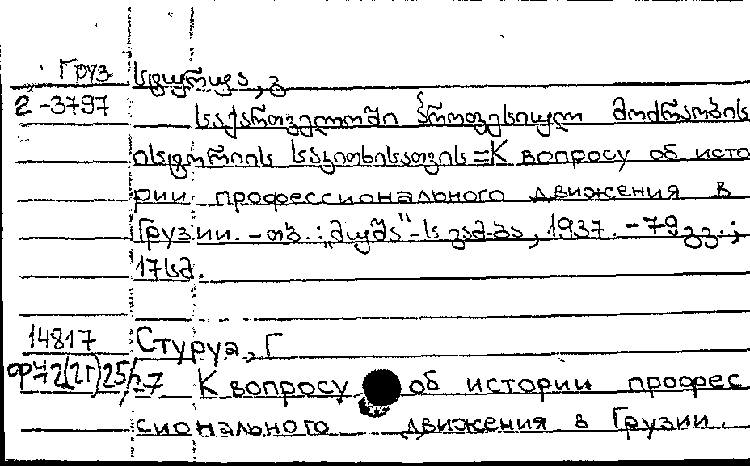 Груз სტურუა, გ
2-3797 საქართველოში პროფესიულ მოძრაობის
ისტორიის საკითხისათვის = К вопросу об исто
рии профессионального движения в
Грузии. - თბ. : „მუშა"-ს გამ-ბა, 1937. - 79 გვ. ;
17 სმ.
14817 Стуруа, Г
К вопросу об истории професс
сионального движения в Грузии.